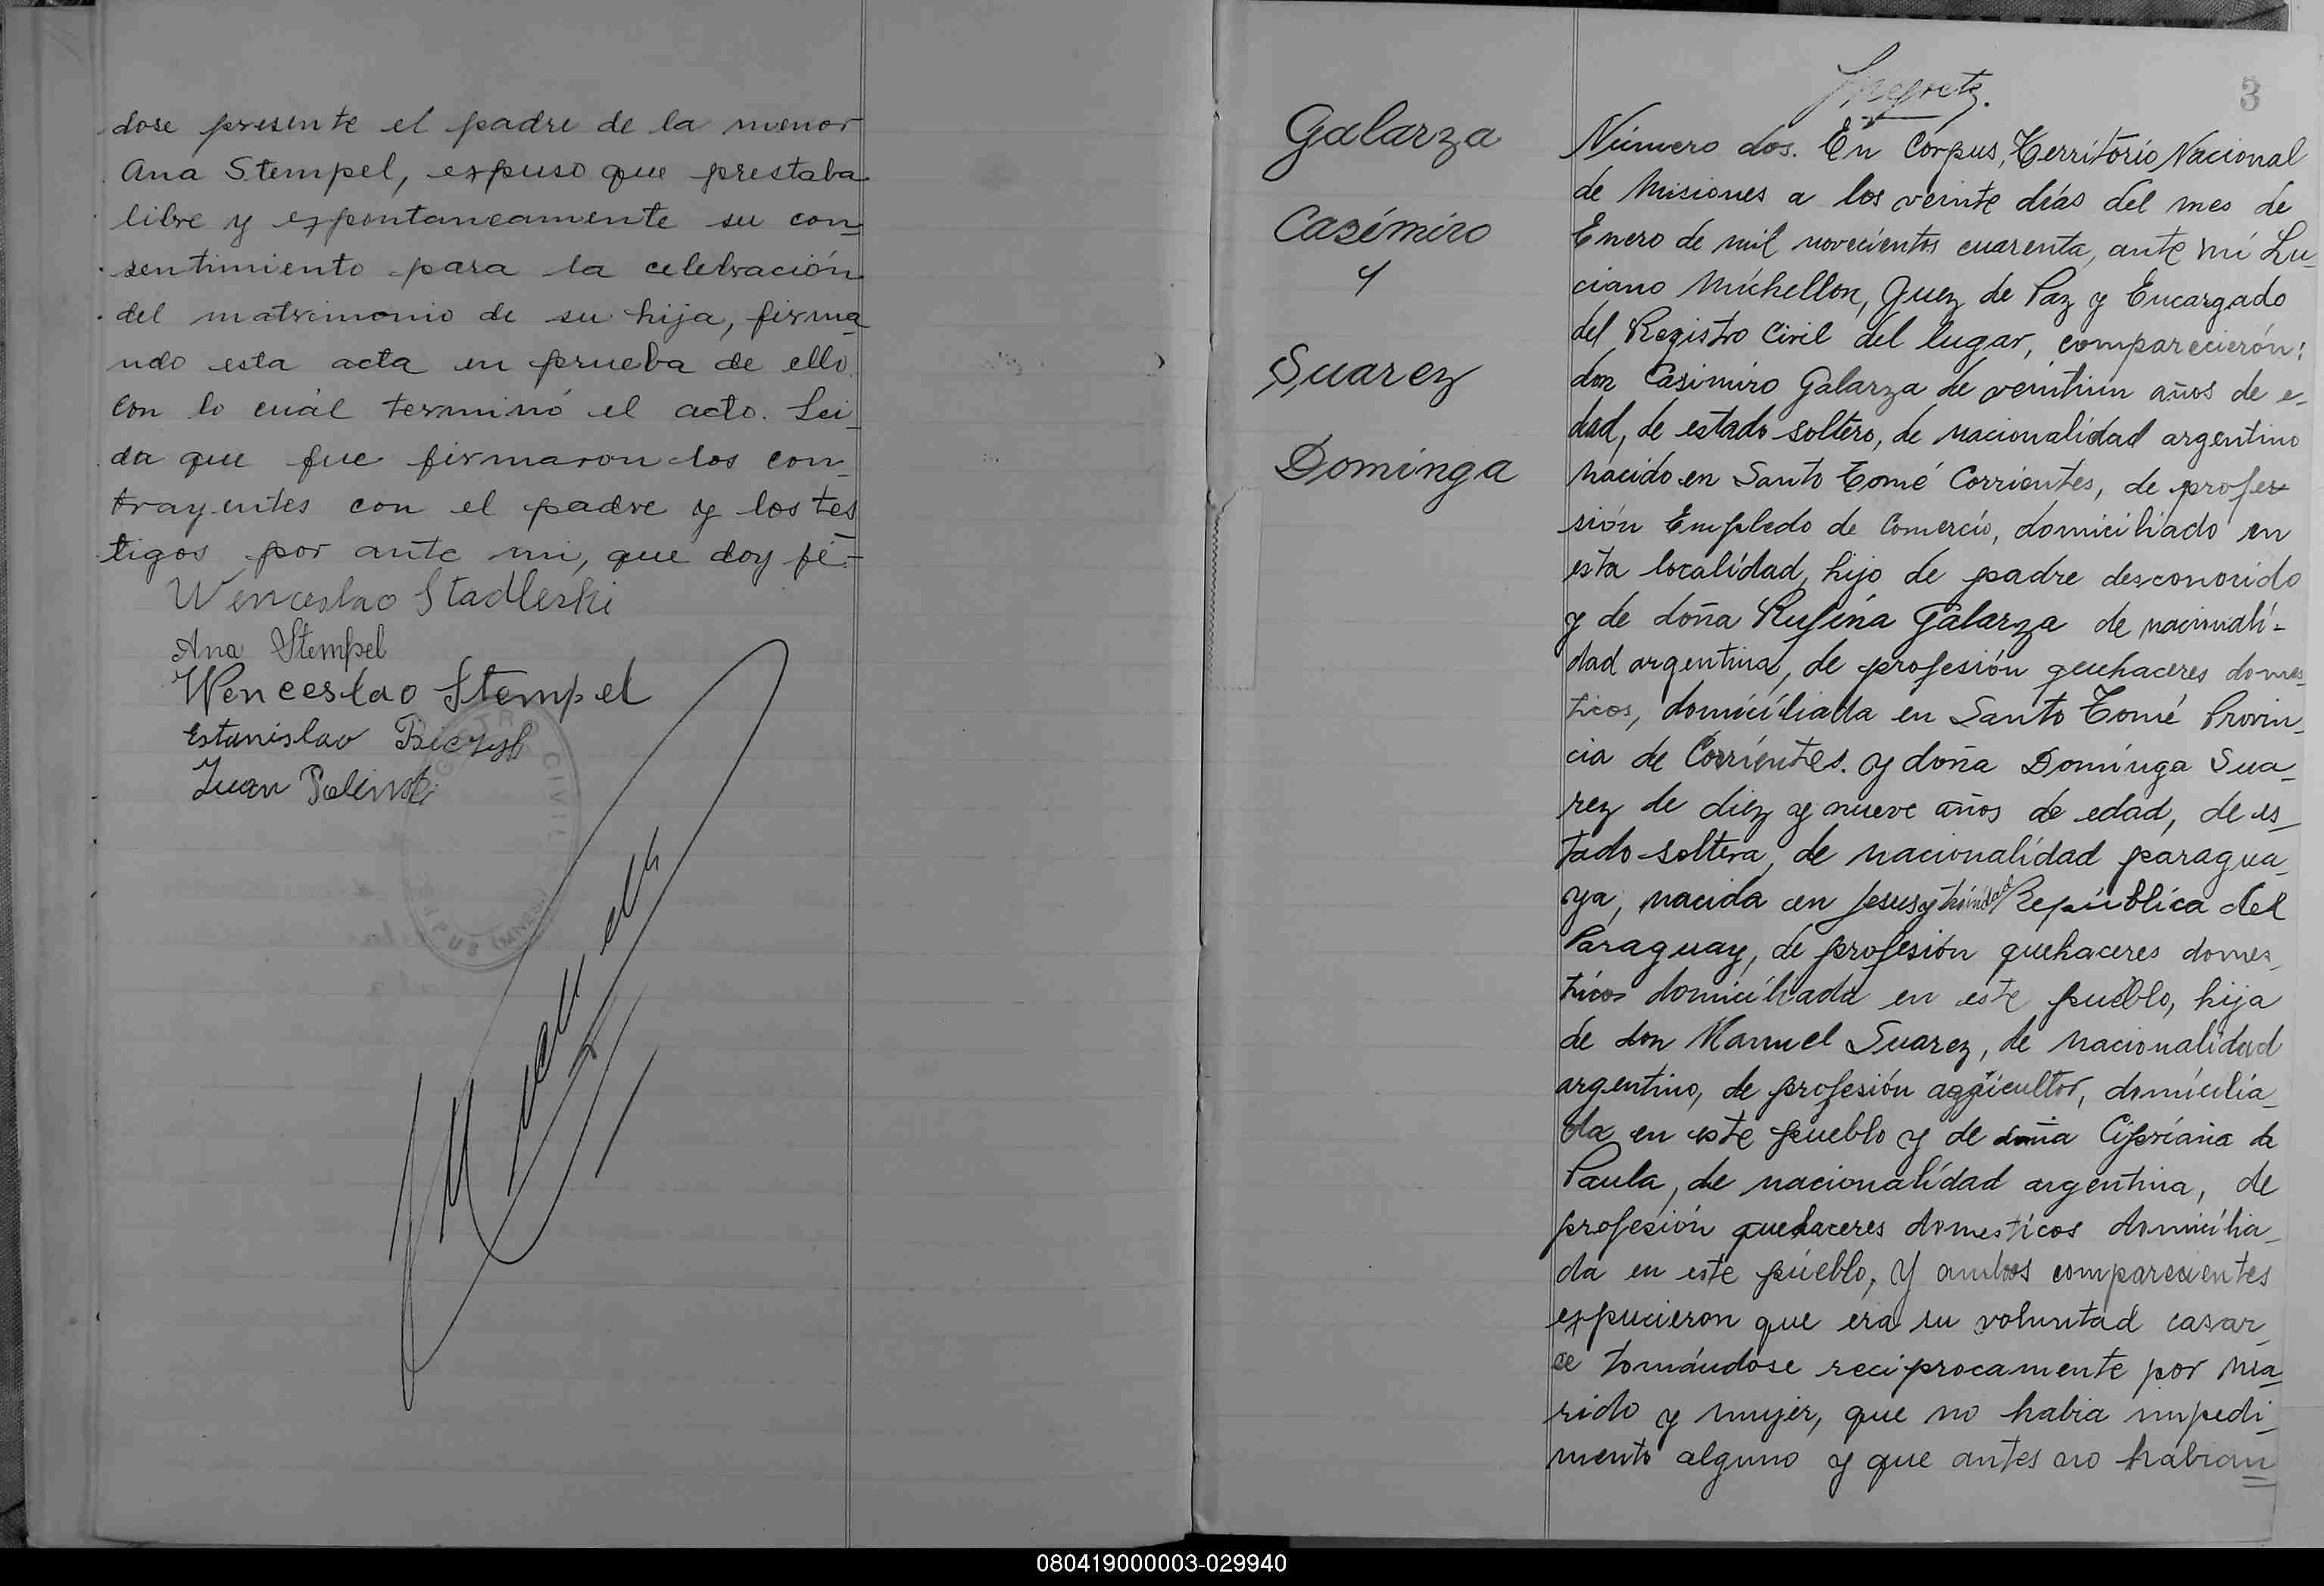 dose presente el padre de la menor
Ana Stempel, expuso que prestaba
libre y expontaneamente su con_
sentimiento para la celebración
del matrimonio de su hija, firma_
ndo esta acta en prueba de ello.
Con lo cuál terminó el acto. Lei_
da que fue firmaron los con_
trayentes con el padre y los tes_
tigos por ante mi, que doy fé.-
Wenceslao Stadleski
Ana Stempel
Wenceslao Stempel
Estanislao
Juan
CIVIL
3
Galarza
Casimiro
y
Suarez
Dominga
Número dos. En Corpus, Territorio Nacional
de Misiones a los veinte días del mes de
Enero de mil novecientos cuarenta, ante mí Lu_
ciano Michellon, Juez de Paz y Encargado
del Registro Civil del lugar, comparecierón:
don Casimiro Galarza de veintiun años de e_
dad, de estado soltero, de nacionalidad argentino
nacido en Santo Tomé Corrientes, de profe
sión Empledo de Comercio, domiciliado en
esta localidad, hijo de padre desconocido
y de doña Rufina Galarza de nacionali-
dad argentina, de profesión quehaceres domes_
ticos, domiciliada en Santo Tomé Provin_
cia de Corrientes. y doña Dominga Sua_
rez de diez y nueve años de edad, de es_
tado soltera, de nacionalidad paragua_
ya, nacida en Jesus y trinidad República del
Paraguay, de profesión quehaceres domes_
ticos domiciliada en este pueblo, hija
de don Manuel Suarez, de nacionalidad
argentino, de profesión agricultor, domicilia_
da en este pueblo y de doña Cipriana de
Paula, de nacionalidad argentina, de
profesión quehaceres domesticos domicilia_
da en este pueblo, Y ambos comparecientes
expucieron que era su voluntad casar_
se tomándose reciprocamente por ma_
rido y mujer, que no habia impedi_
mento alguno y que antes no habian
080419000003-029940